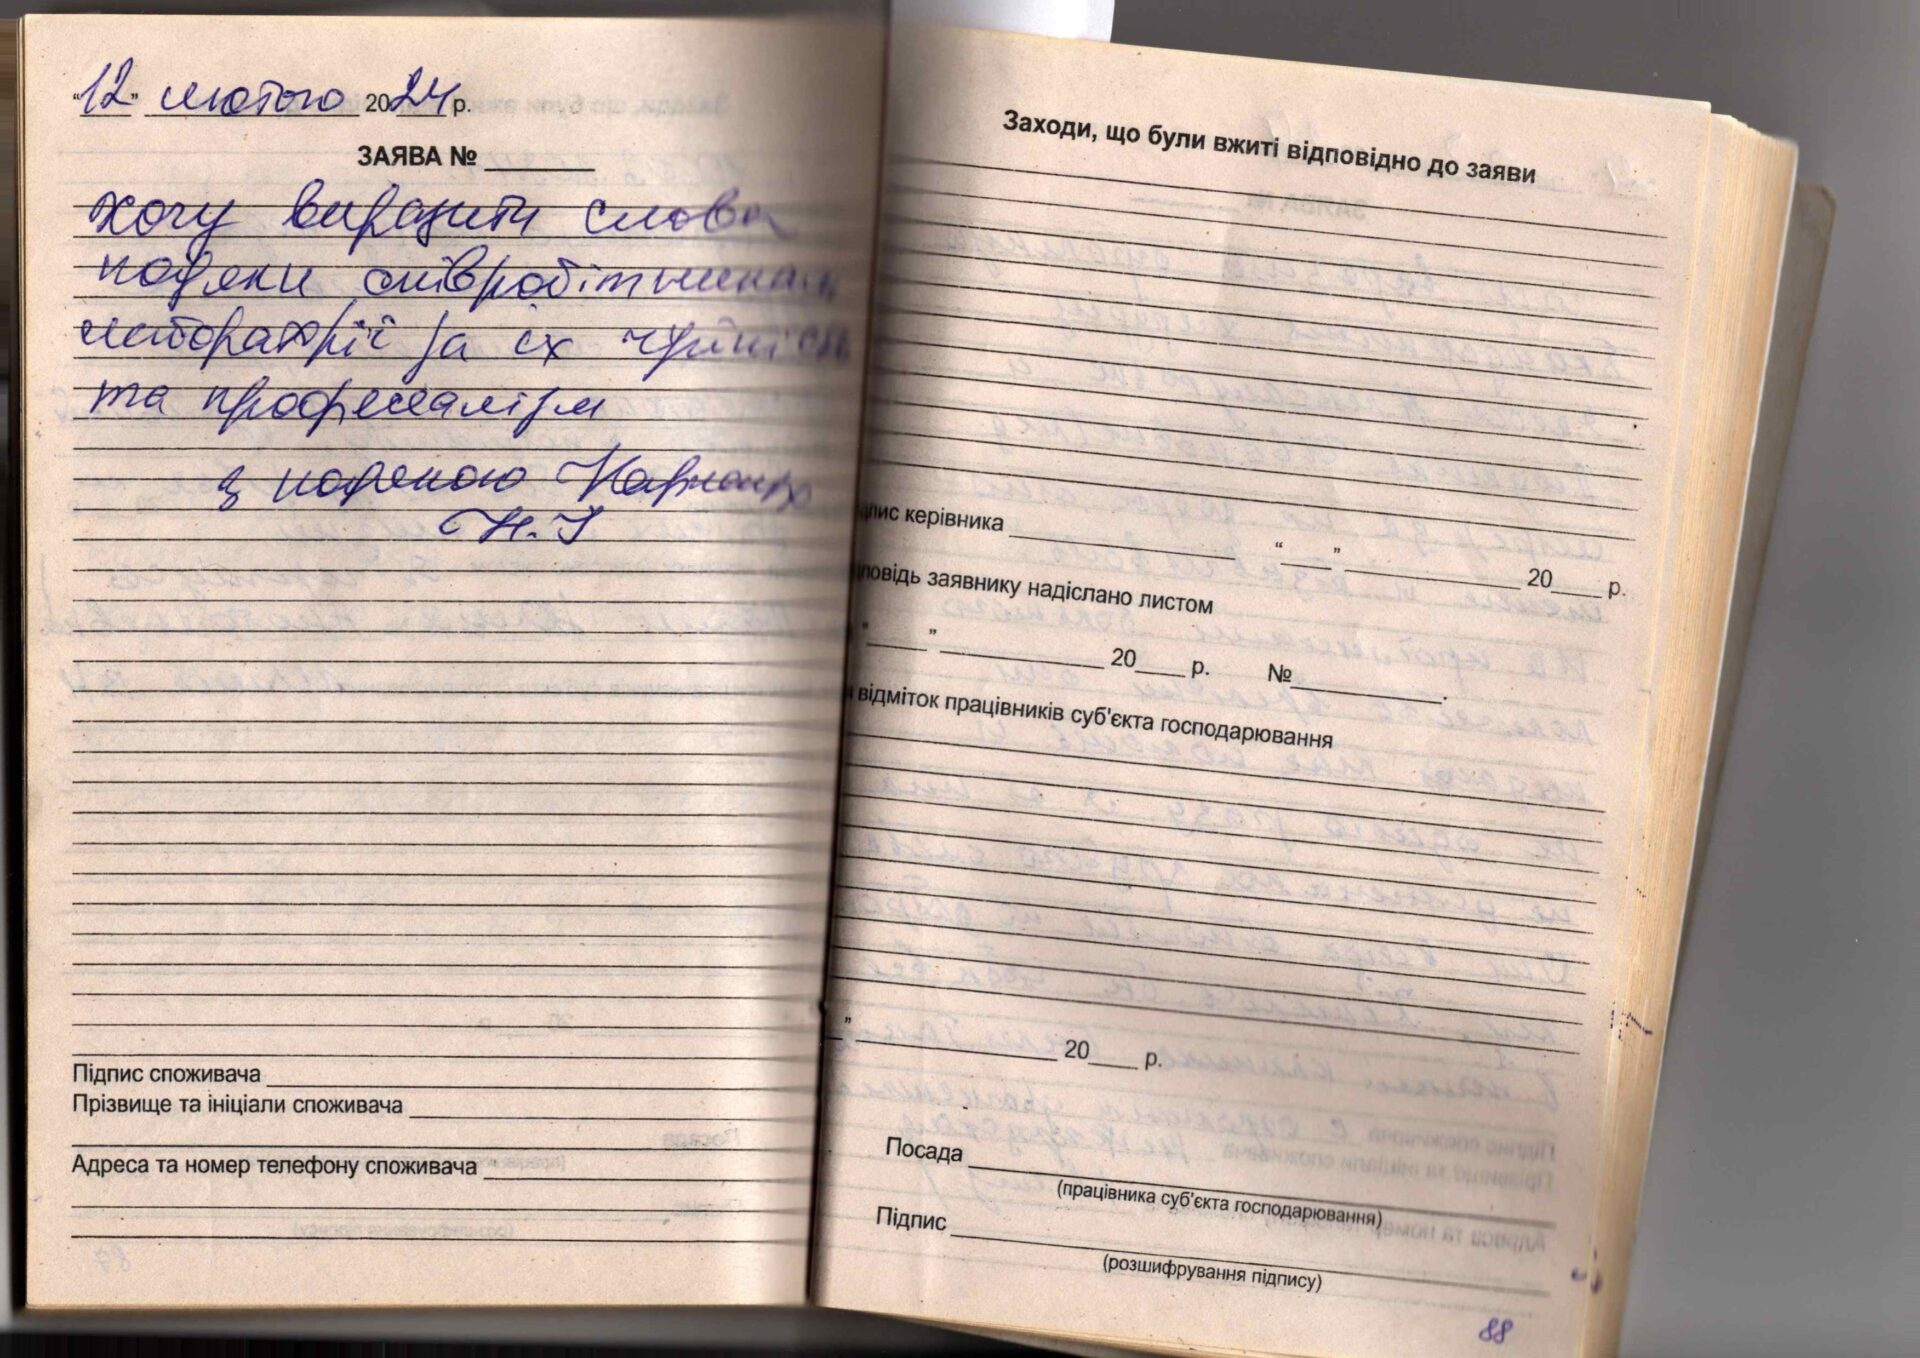 "12" лютого 2024 р.
ЗАЯВА № ______
хочу виразити слова
подяки співробітникам
лабораторії за їх чуйність
та професіалізм
з подякою
Н.І
Підпис споживача
Прізвище та ініціали споживача
Адреса та номер телефону споживача
Заходи, що були вжиті відповідно до заяви
дпис керівника ______ "___" ______ 20___ р.
повідь заявнику надіслано листом
"___" ______ 20___ р. № ______.
відміток працівників суб'єкта господарювання
" ______ 20___ р.
Посада
(працівника суб'єкта господарювання)
Підпис
(розшифрування підпису)
88